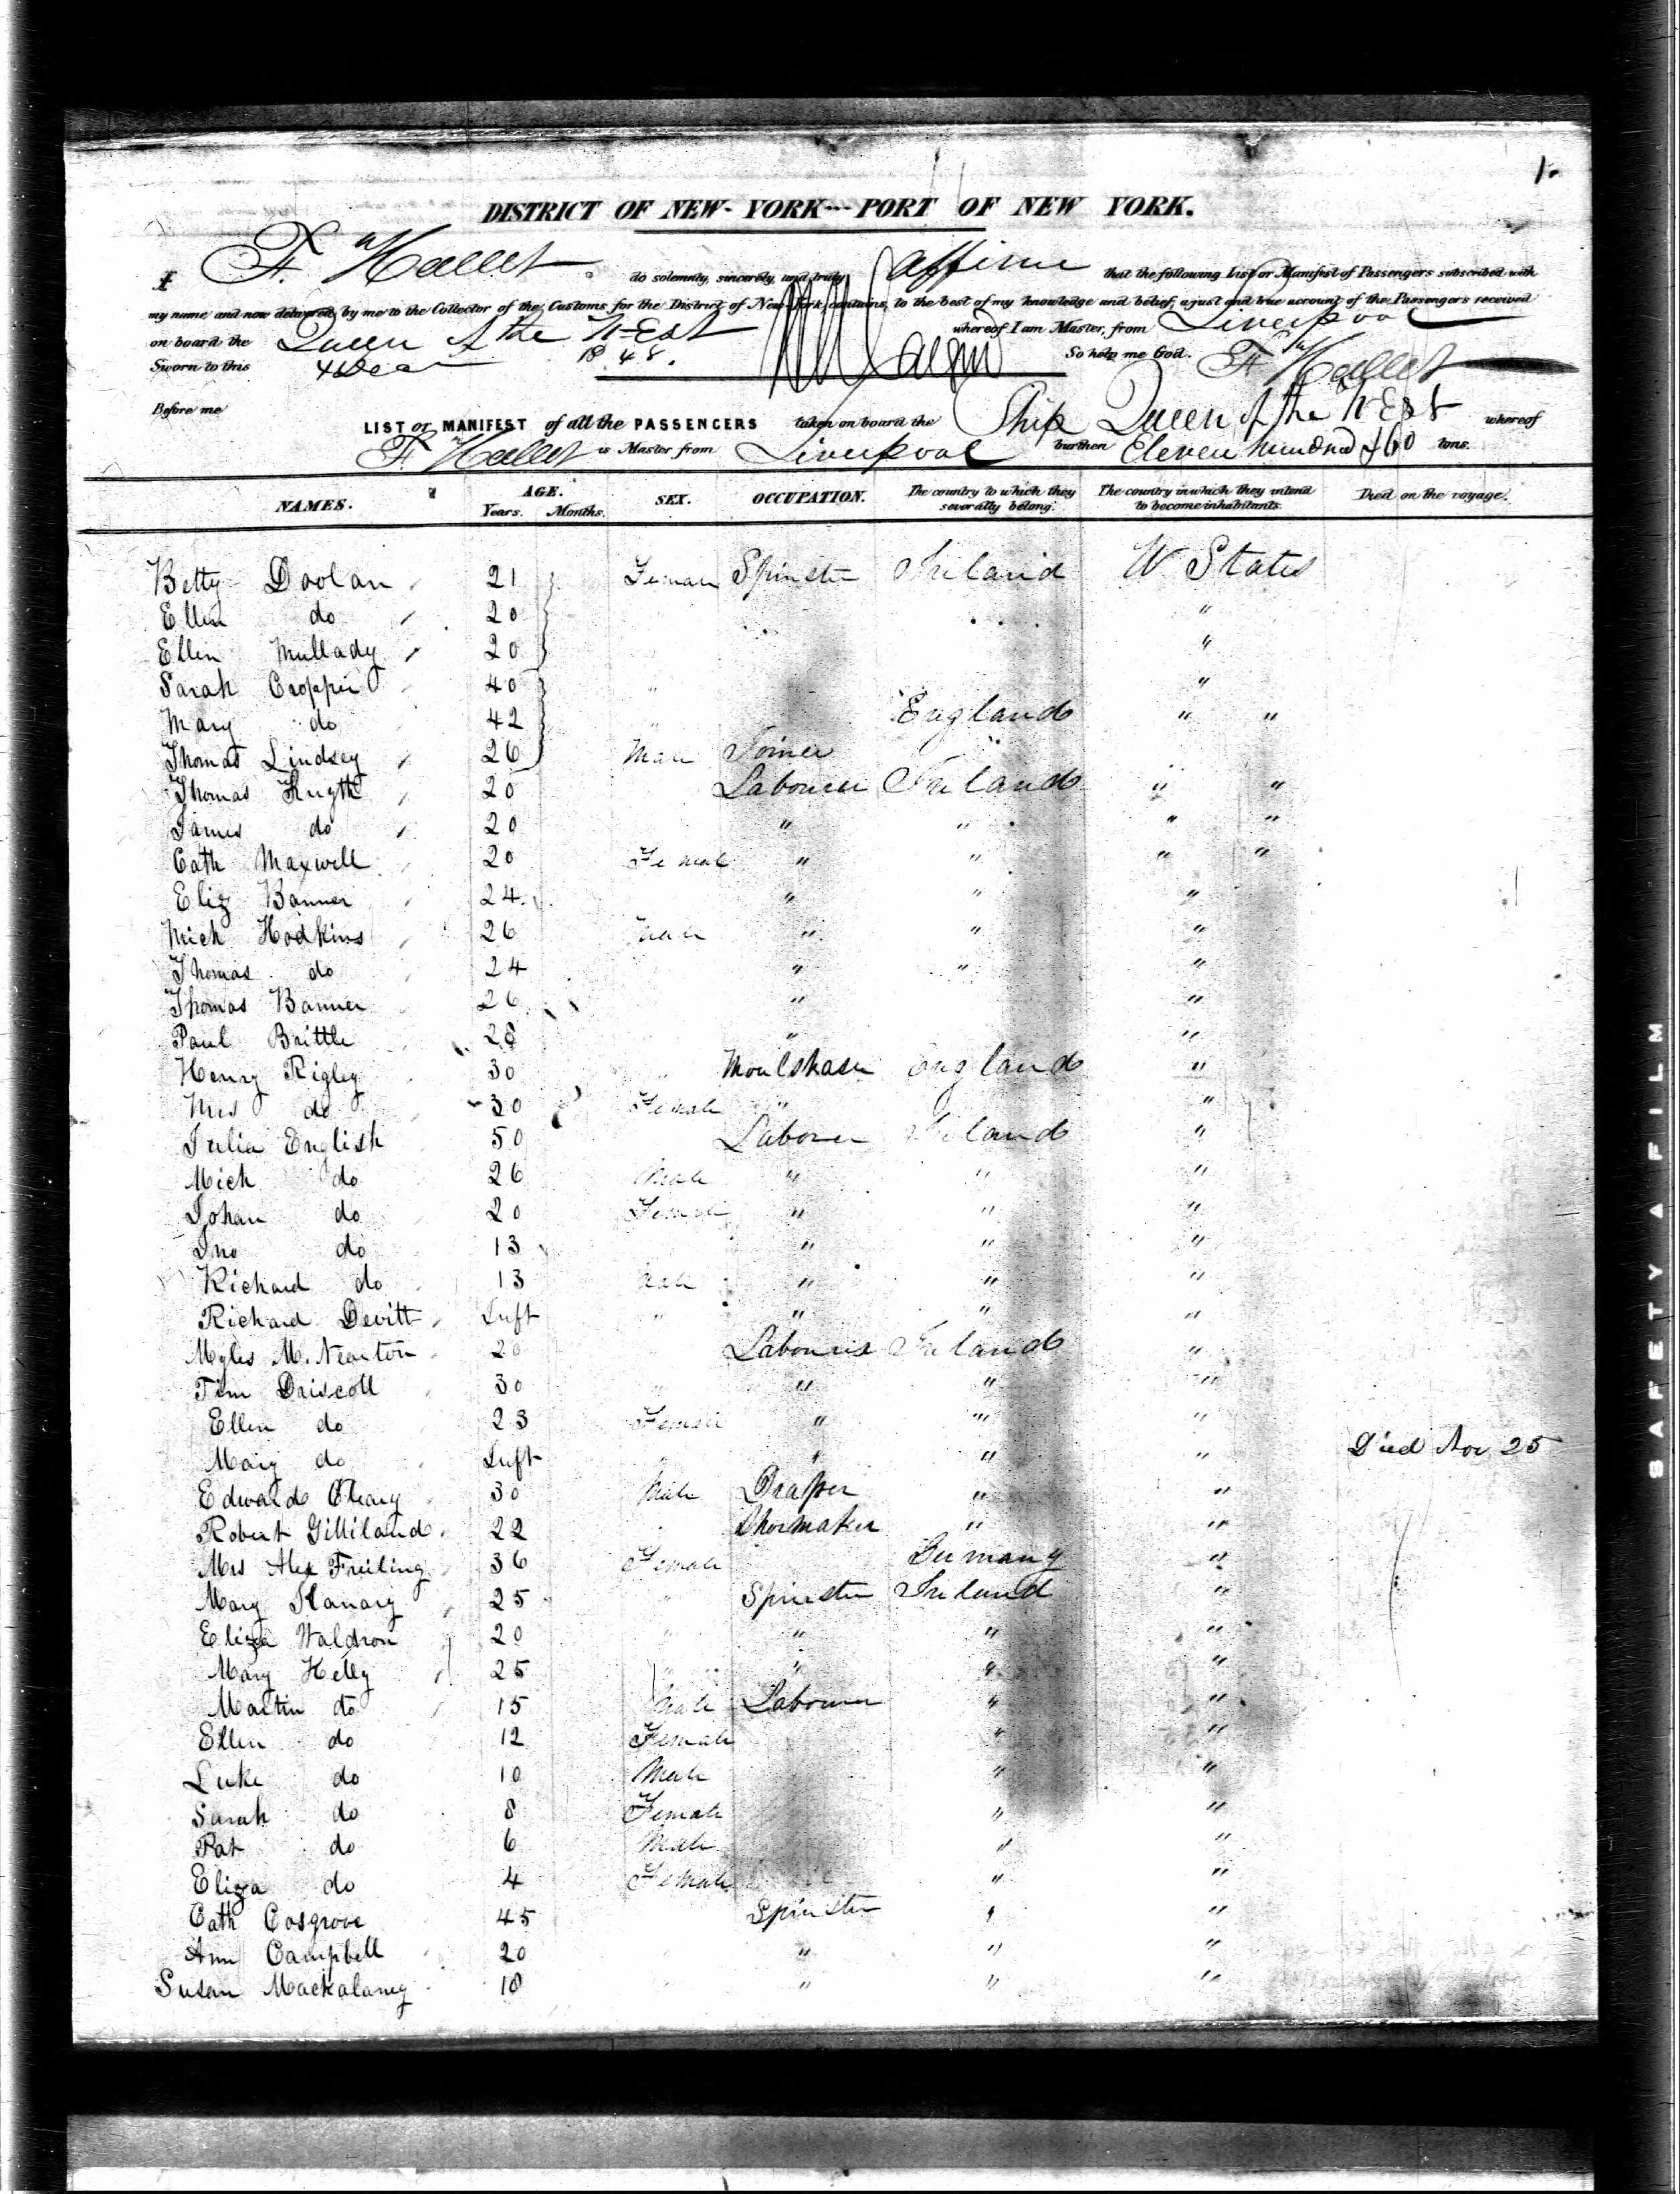 1.
DISTRICT OF NEW-YORK---PORT OF NEW YORK.
I F. Hallet do solemnly, sincerely, and truly affirm that the following List or Manifest of Passengers subscribed with
my name, and now delivered by me to the Collector of the Customs for the District of New-York, contains, to the best of my knowledge and belief, a just and true account of the Passengers received
on board the Queen of the West whereof I am Master, from Liverpool
Sworn to this 4 Dec 1848. So help me God. F Hallet
Before me
LIST or MANIFEST of all the PASSENGERS taken on board the Ship Queen of the West whereof
F Hallet is Master from Liverpool burthen Eleven hundred & 60 tons.
NAMES. AGE. Years. Months. SEX. OCCUPATION. The country to which they severally belong. The country in which they intend to become inhabitants. Died on the voyage.
Betty Doolan 21 Female Spinster Ireland U States
Ellen do 20 "
Ellen Mullady 20 "
Sarah Cropper 40 " "
Mary do 42 " England " "
Thomas Lindsey 26 Male Joiner "
Thomas 20 Labourer Ireland " "
James do 20 " " " "
Cath Maxwell 20 Female " " " "
Eliz Banner 24 " " "
Mich Hodkins 26 Male " " "
Thomas do 24 " " "
Thomas Banner 26 " "
Paul Brittle 28 " "
Henry Rigley 30 " England "
Mrs do 30 Female " "
Julia English 50 Laborer Ireland "
Mich do 26 Male " " "
Johan do 20 Female " " "
Jno do 13 " " "
Richard do 13 Male " " "
Richard Devitt Inft " " " "
Myles M. 20 Labourer Ireland "
Tim Driscoll 30 " " " "
Ellen do 23 Female " " "
Mary do Inft " " " " Died Nov 25
Edward Cleary 30 Male Draper " "
Robert Gilliland 22 Shoemaker " "
Mrs Alex Freiling 36 Female Germany "
Mary 25 " Spinster Ireland "
Eliza Waldron 20 " " " "
Mary Kelly 25 " " " "
Martin do 15 Male Labourer " "
Ellen do 12 Female " "
Luke do 10 Male " "
Sarah do 8 Female " "
Pat do 6 Male " "
Eliza do 4 Female " "
Cath Cosgrove 45 Spinster " "
Ann Campbell 20 " " "
Susan Mackalaney 18 " " "
SAFETY A FILM